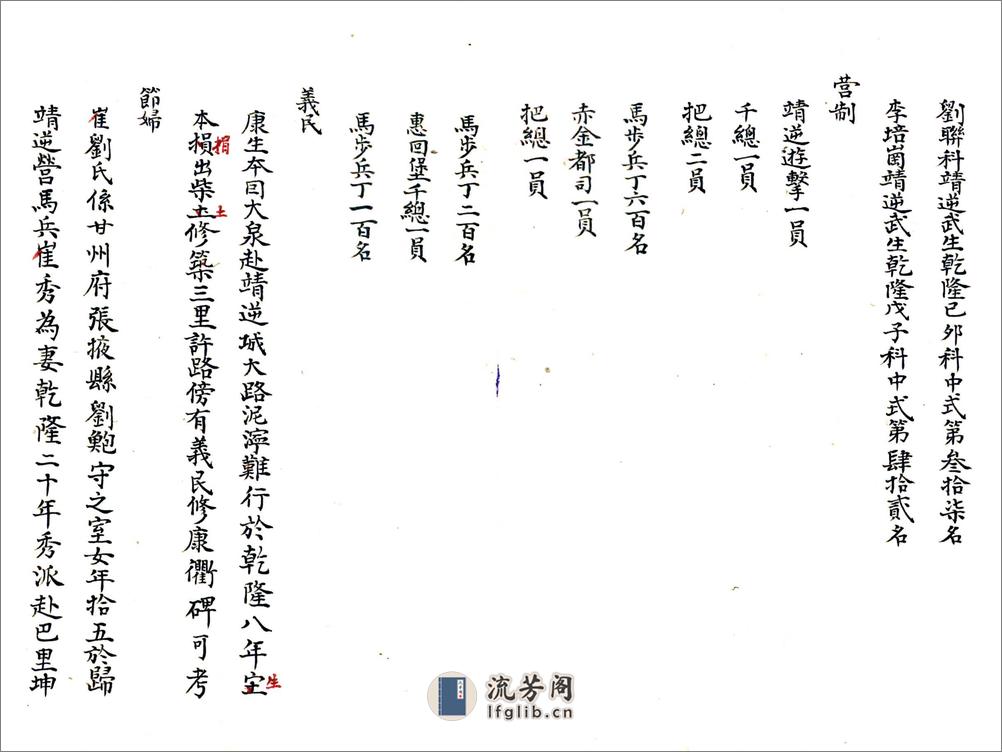 劉聯科靖逆武生乾隆己夘科中式第叁拾柒名
李培崗靖逆武生乾隆戊子科中式第肆拾貳名
营制
靖逆遊擊一員
千總一員
把總二員
馬步兵丁六百名
赤金都司一員
把總一員
馬步兵丁二百名
惠回堡千總一員
馬步兵丁一百名
義民
康生本因大泉赴靖逆城大路泥濘難行於乾隆八年宝
生
本損出柴土修築三里許路傍有義民修康衢碑可考
捐
土
節婦
崔劉氏係甘州府張掖縣劉鮑守之室女年拾五於歸
靖逆營馬兵崔秀為妻乾隆二十年秀派赴巴里坤
流芳阁
lfglib.cn